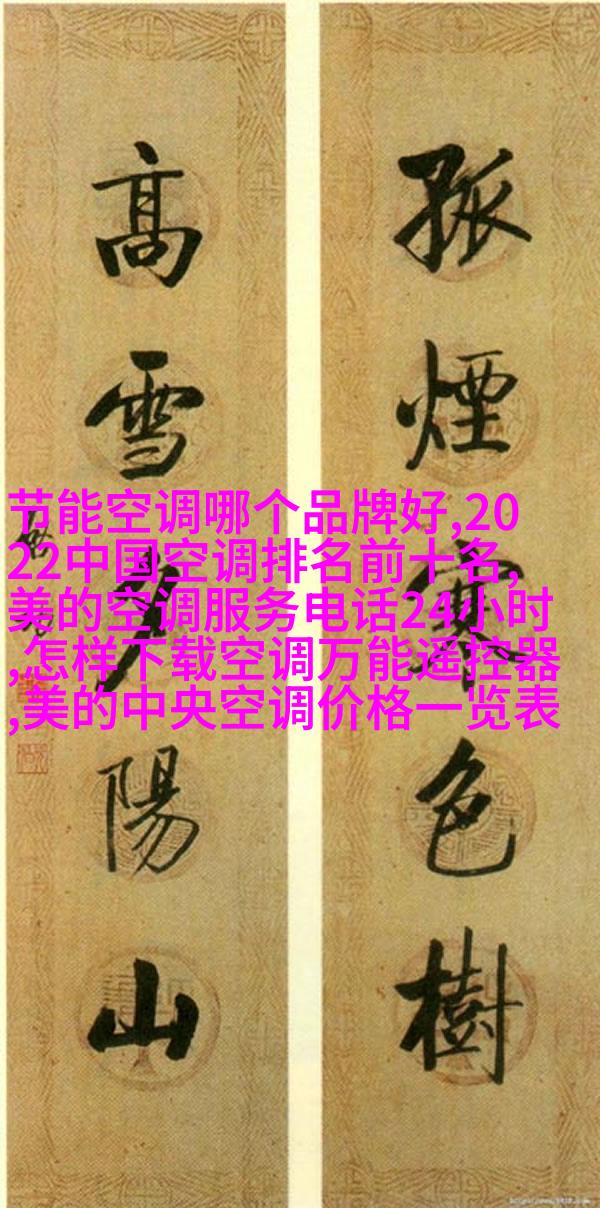 孤煙寒色樹
高雪夕陽山
节能空调哪个品牌好,20
22中国空调排名前十名,
美的空调服务电话24小时
,怎样下载空调万能遥控器
,美的中央空调价格一览表